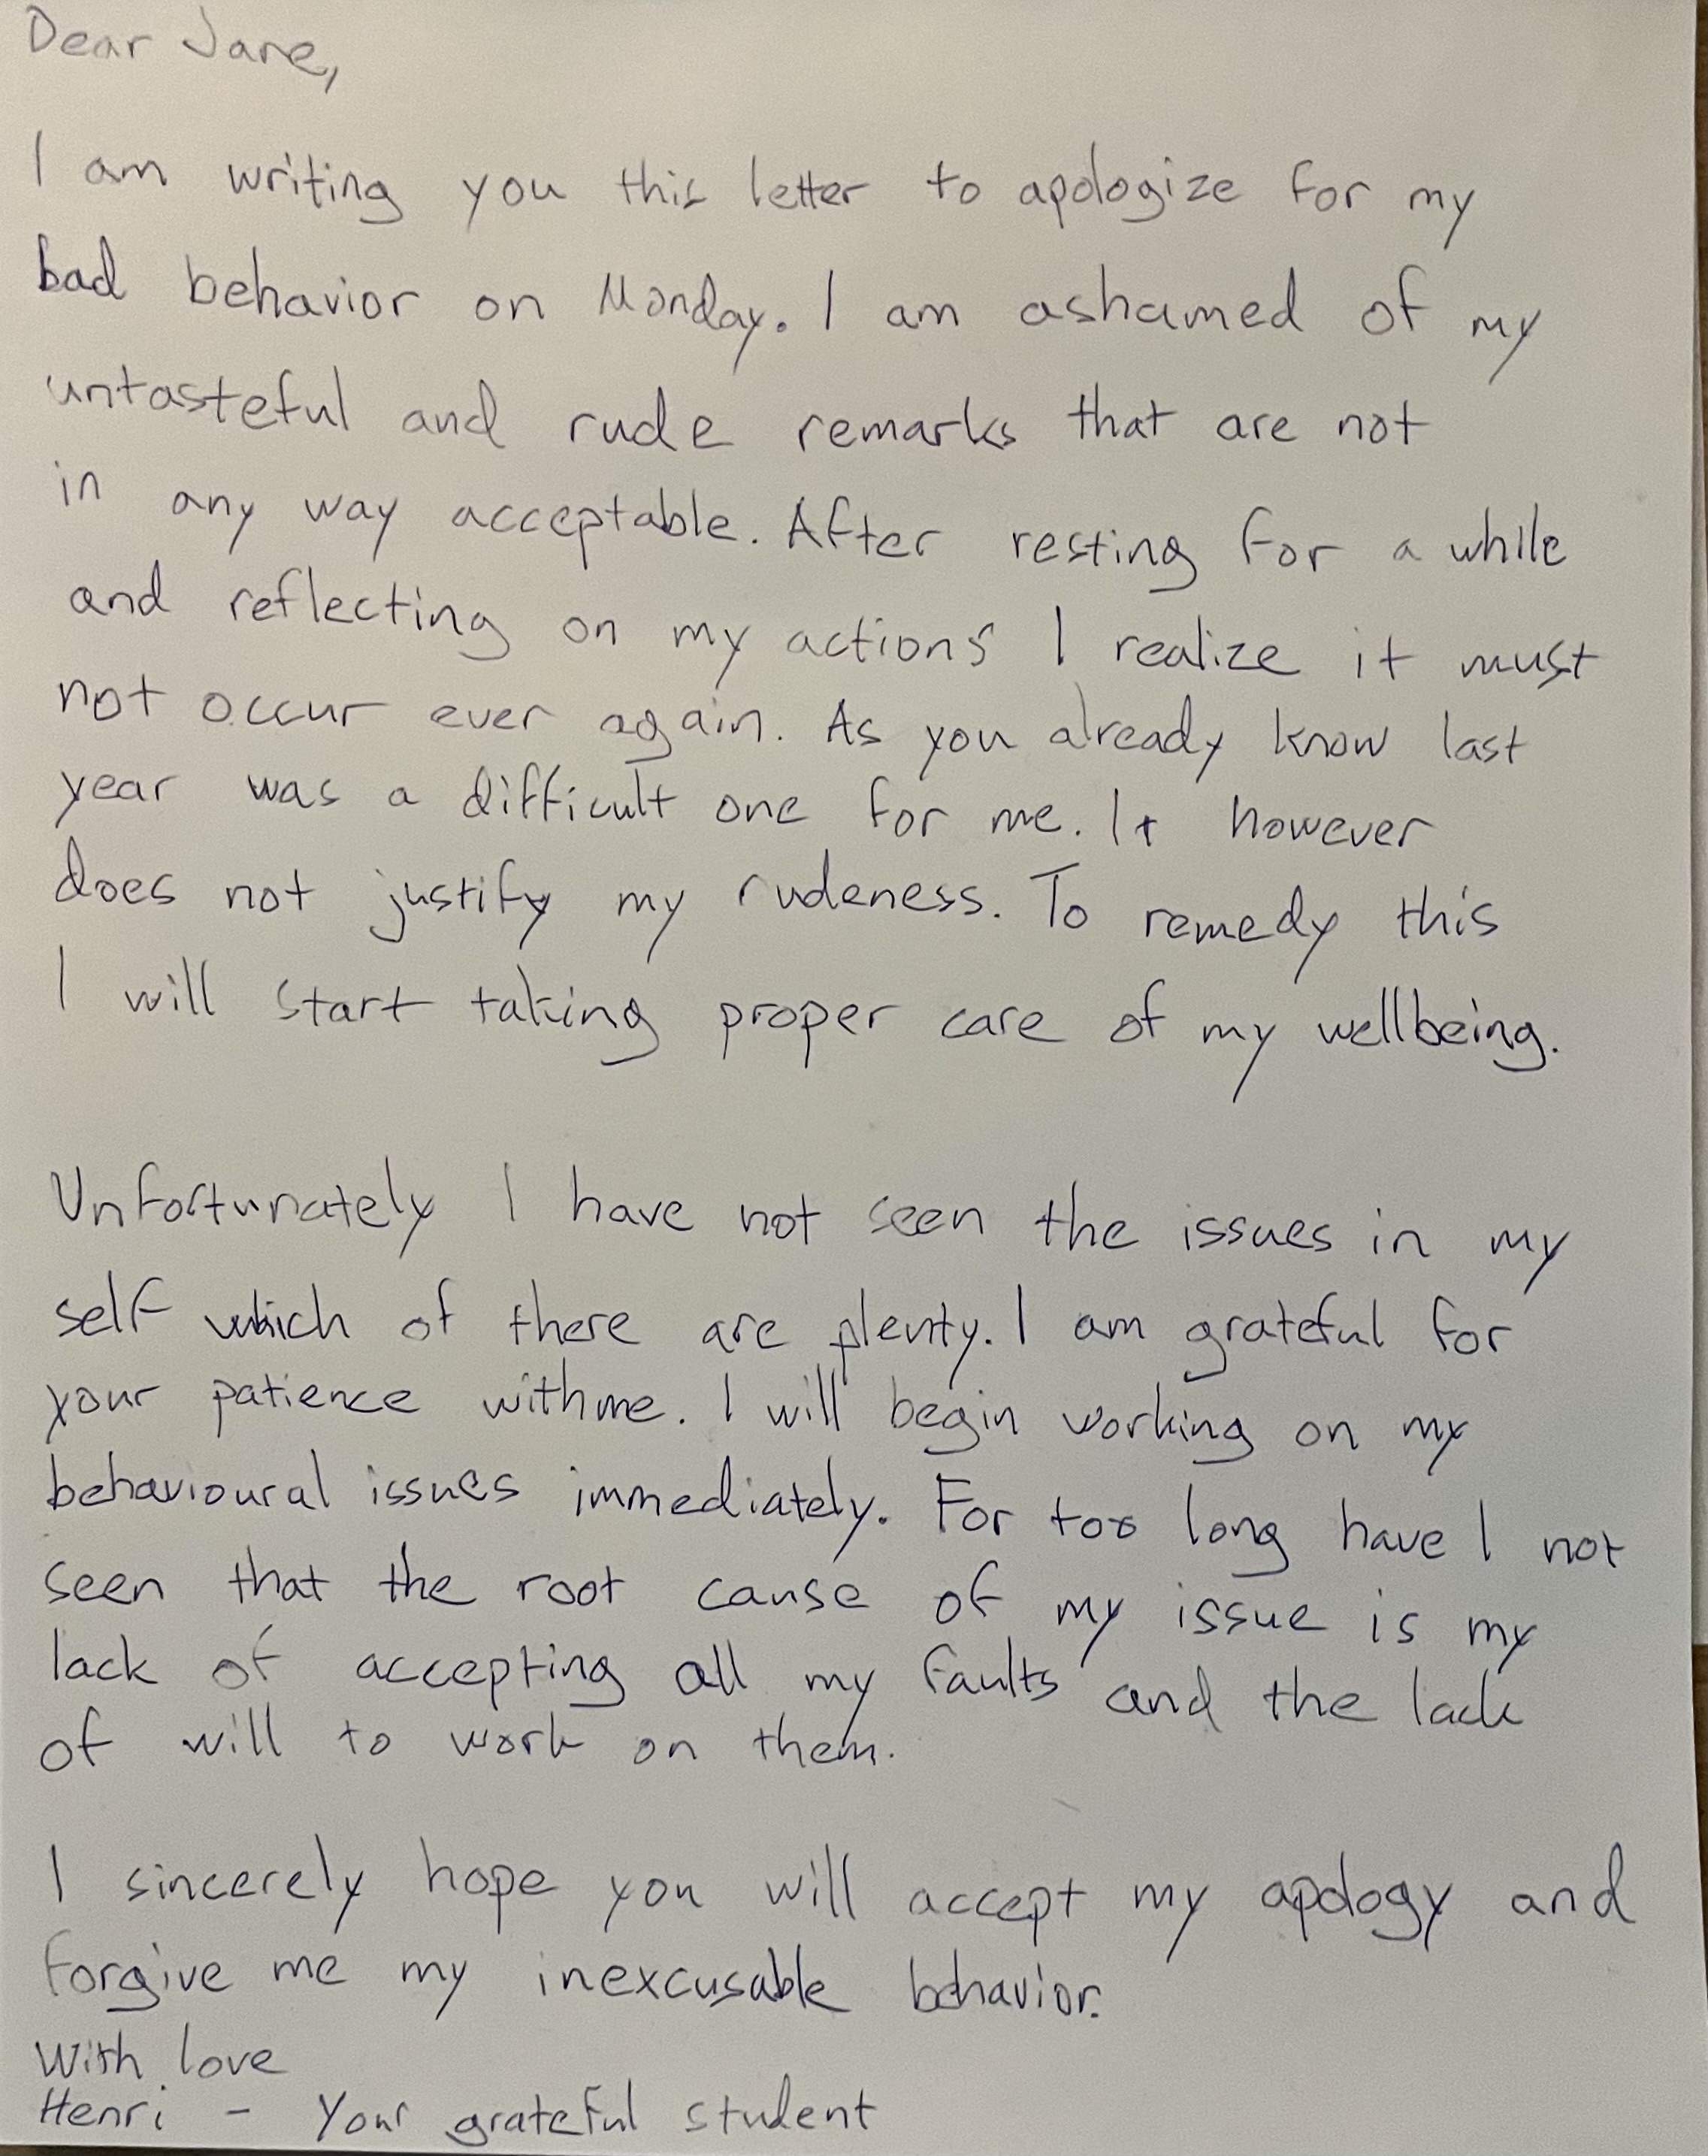 Dear Jane,
I am writing you this letter to apologize for my
bad behavior on Monday. I am ashamed of my
untasteful and rude remarks that are not
in any way acceptable. After resting for a while
and reflecting on my actions I realize it must
not occur ever again. As you already know last
year was a difficult one for me. It however
does not justify my rudeness. To remedy this
I will start taking proper care of my wellbeing.
Unfortunately I have not seen the issues in my
self which of there are plenty. I am grateful for
your patience with me. I will begin working on my
behavioural issues immediately. For too long have I not
seen that the root cause of my issue is my
lack of accepting all my faults and the lack
of will to work on them.
I sincerely hope you will accept my apology and
forgive me my inexcusable behavior.
With love
Henri - Your grateful student